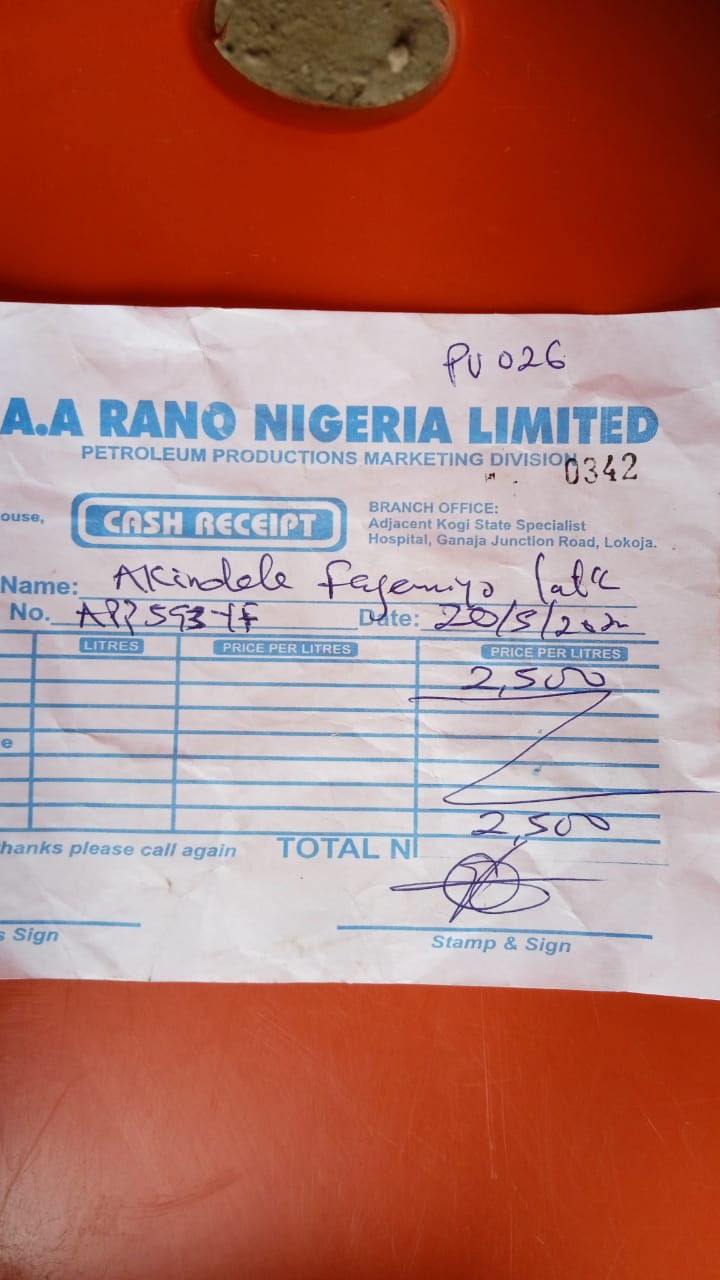 PV 026
A.A RANO NIGERIA LIMITED
PETROLEUM PRODUCTIONS MARKETING DIVISION
0342
ouse,
CASH RECEIPT
BRANCH OFFICE:
Adjacent Kogi State Specialist
Hospital, Ganaja Junction Road, Lokoja.
Name: Akindele
No. Date: 20/5/
LITRES PRICE PER LITRES PRICE PER LITRES
2,500
e
2,500
hanks please call again TOTAL N
s Sign
Stamp & Sign